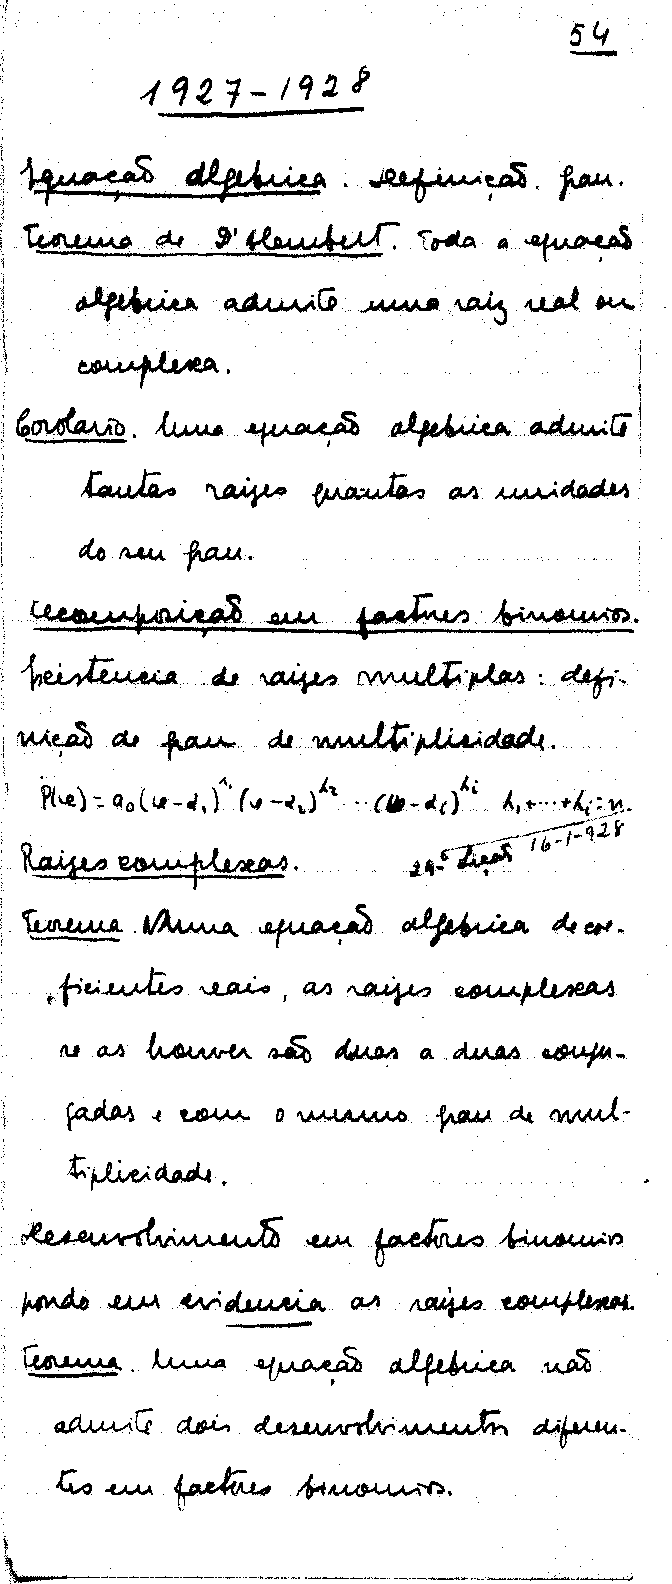 54
1927-1928
Equação algebrica. Definição. grau.
Teorema de D'Alembert. Toda a equação
algebrica admite uma raiz real ou
complexa.
Corolario. Uma equação algebrica admite
tantas raizes quantas as unidades
do seu grau.
Decomposição em factores binomios.
Existencia de raizes multiplas: defi-
nição de grau de multiplicidade.
P(x) = a₀(x-α₁)^h₁ (x-α₂)^h₂ ... (x-αᵢ)^hᵢ h₁+...+hᵢ=n.
29ª Lição 16-1-928
Raizes complexas.
Teorema Numa equação algebrica de coe-
ficientes reais, as raizes complexas
se as houver são duas a duas conju-
gadas e com o mesmo grau de mul-
tiplicidade.
Desenvolvimento em factores binomios
pondo em evidencia as raizes complexas.
Teorema. Uma equação algebrica não
admite dois desenvolvimentos diferen-
tes em factores binomios.